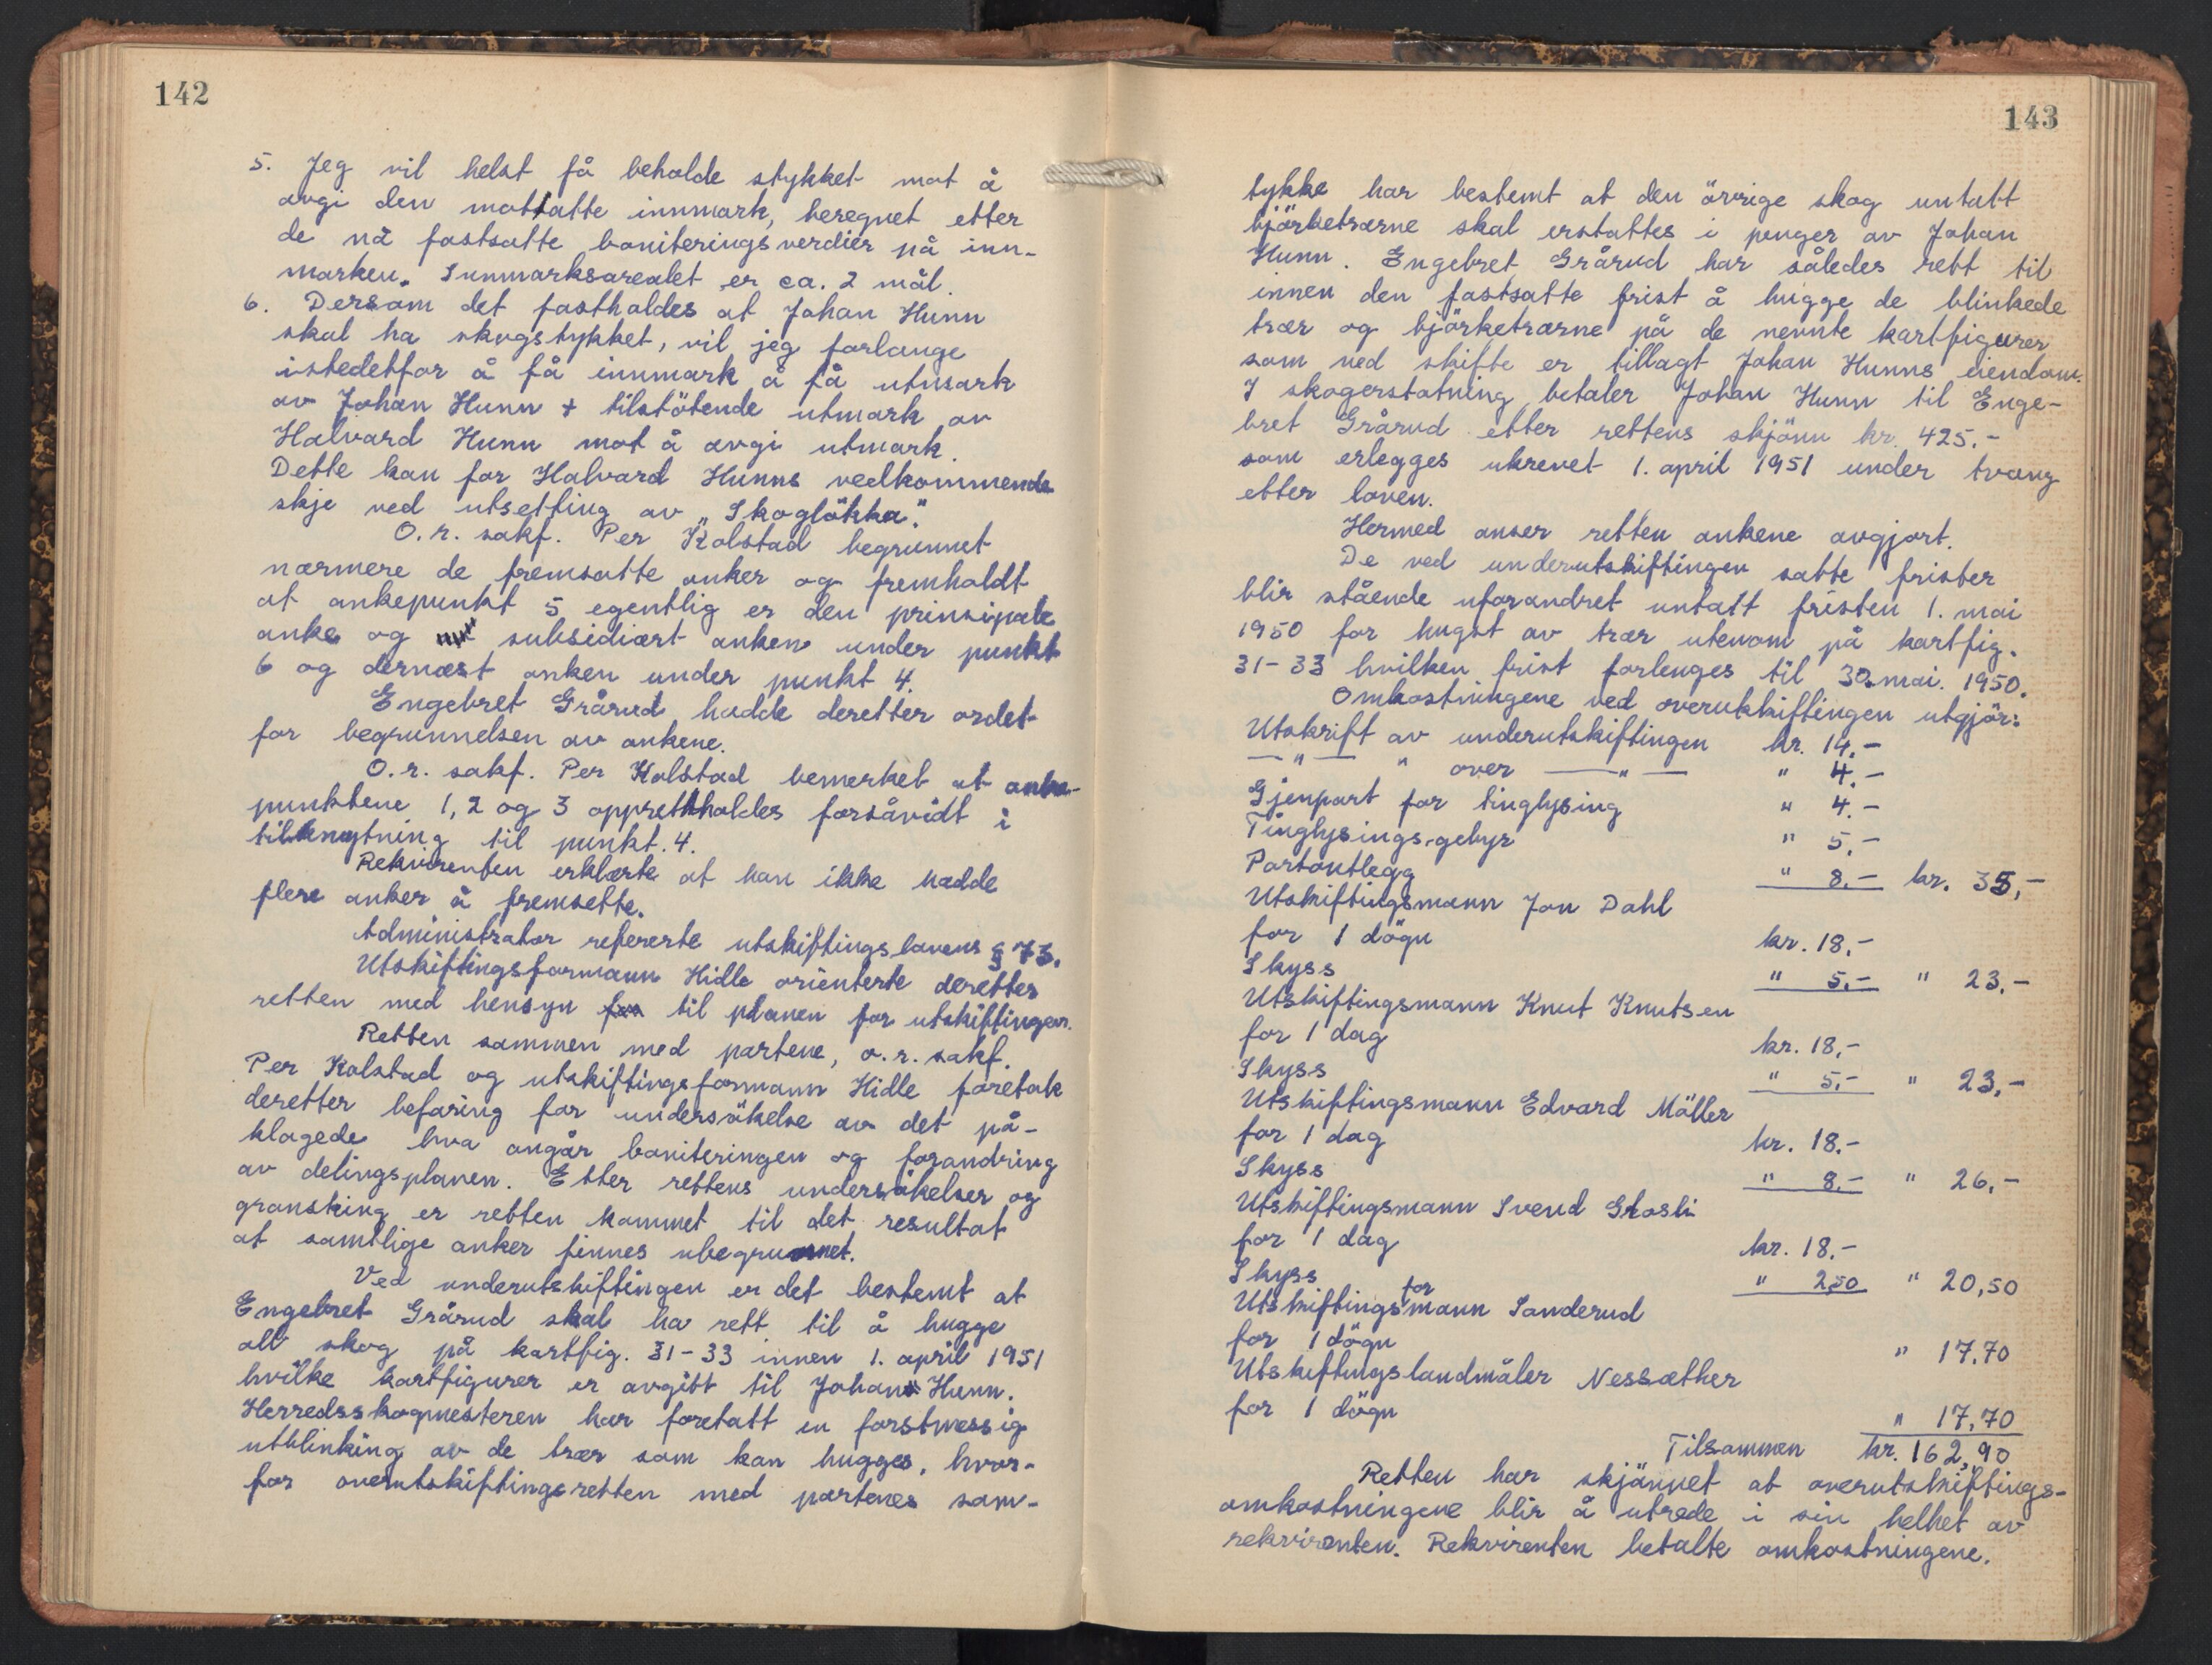 142
5. Jeg vil helst få beholde stykket mot å
avgi den mottatte innmark, beregnet etter
de nå fastsatte boniteringsverdier på inn-
marken. Innmarksarealet er ca. 2 mål.
6. Dersom det fastholdes at Johan Hunn
skal ha skogstykket, vil jeg forlange
istedetfor å få innmark å få utmark
av Johan Hunn + tilstötende utmark av
Halvard Hunn mot å avgi utmark.
Dette kan for Halvard Hunns vedkommende
skje ved utsetting av „Skoglökka".
O.r. sakf. Per Kolstad begrunnet
nærmere de fremsatte anker og fremholdt
at ankepunkt 5 egentlig er den prinsipale
anke og subsidiært anken under punkt
6 og dernæst anken under punkt 4.
Engebret Grårud hadde deretter ordet
for begrunnelsen av ankene.
O.r. sakf. Per Kolstad bemerket at anke-
punktene 1, 2 og 3 opprettholdes forsåvidt i
tilknytning til punkt. 4.
Rekvirenten erklærte at han ikke hadde
flere anker å fremsette.
Administrator refererte utskiftingslovens § 73.
Utskiftingsformann Hidle orienterte deretter
retten med hensyn for til planen for utskiftingen.
Retten sammen med partene, o.r. sakf.
Per Kolstad og utskiftingsformann Hidle foretok
deretter befaring for undersökelse av det på-
klagede hva angår boniteringen og forandring
av delingsplanen. Etter rettens undersökelser og
gransking er retten kommet til det resultat
at samtlige anker finnes ubegrunnet.
Ved underutskiftingen er det bestemt at
Engebret Grårud skal ha rett til å hugge
all skog på kartfig. 31-33 innen 1. april 1951
hvilke kartfigurer er avgitt til Johan Hunn.
Herredsskogmesteren har foretatt en forstmessig
utblinking av de trær som kan hugges, hvor-
for overutskiftingsretten med partenes sam-
143
tykke har bestemt at den övrige skog untatt
björketrærne skal erstattes i penger av Johan
Hunn. Engebret Grårud har således rett til
innen den fastsatte frist å hugge de blinkede
trær og björketrærne på de nevnte kartfigurer
som ved skifte er tillagt Johan Hunns eiendom.
I skogerstatning betaler Johan Hunn til Enge-
bret Grårud etter rettens skjönn kr. 425.-
som erlegges ukrevet 1. april 1951 under tvang
etter loven.
Hermed anser retten ankene avgjort.
De ved underutskiftingen satte frister
blir stående uforandret untatt fristen 1. mai
1950 for hugst av trær utenom på kartfig.
31-33 hvilken frist forlenges til 30. mai. 1950.
Omkostningene ved overutskiftingen utgjör:
Utskrift av underutskiftingen kr. 14.-
—"— " over —"— " 4.-
Gjenpart for tinglysing " 4.-
Tinglysings-gebyr " 5.-
Portoutlegg " 8.- kr. 35,-
Utskiftingsmann Jon Dahl
for 1 dögn kr. 18.-
Skyss " 5.- " 23.-
Utskiftingsmann Knut Knutsen
for 1 dag kr. 18.-
Skyss " 5.- " 23.-
Utskiftingsmann Edvard Möller
for 1 dag kr. 18.-
Skyss " 8.- " 26.-
Utskiftingsmann Svend Grosli
for 1 dag kr. 18.-
Skyss " 2,50 " 20,50
Utskiftingsformann Sanderud
for 1 dögn " 17.70
Utskiftingslandmåler Nessæther
for 1 dögn " 17,70
Tilsammen kr. 162,90
Retten har skjönnet at overutskiftings-
omkostningene blir å utrede i sin helhet av
rekvirenten. Rekvirenten betalte omkostningene.